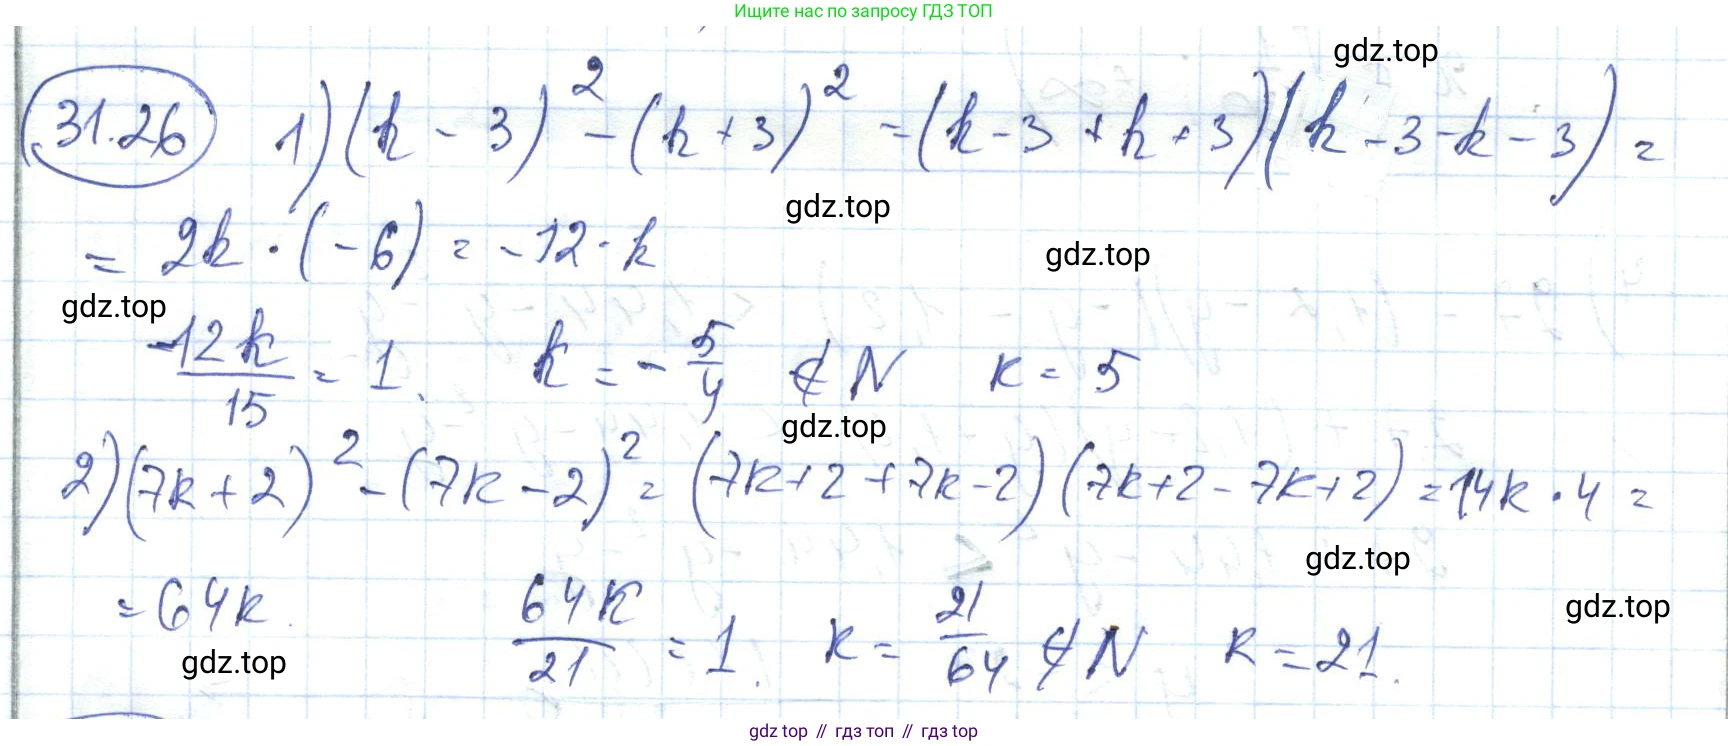 Ищите нас по запросу ГДЗ ТОП
gdz.top
31.26 1) (k - 3)² - (k + 3)² = (k - 3 + k + 3)(k - 3 - k - 3) =
gdz.top
= 2k · (-6) = -12 · k
gdz.top
gdz.top
-12k/15 = 1. k = -5/4 ∉ N k = 5
gdz.top
2) (7k + 2)² - (7k - 2)² = (7k + 2 + 7k - 2)(7k + 2 - 7k + 2) = 14k · 4 =
gdz.top
= 64k. 64k/21 = 1. k = 21/64 ∉ N k = 21.
gdz.top
gdz.top
gdz top // гдз топ // гдз top